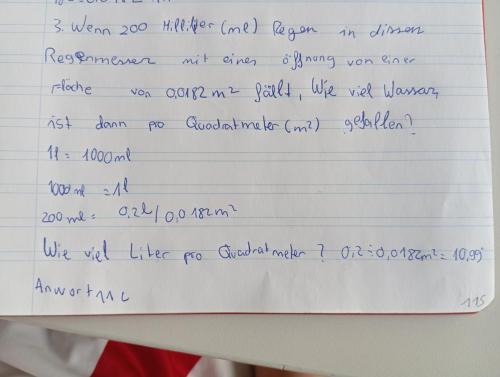 3. Wenn 200 Milliliter (ml) Regen in diesen
Regenmesser mit einer öffnung von einer
Fläche von 0,0182 m² fällt, Wie viel Wasser,
ist dann pro Quadratmeter (m²) gefallen?
1l = 1000ml
1000 ml = 1l
200 ml = 0,2l / 0,0182 m²
Wie viel Liter pro Quadratmeter? 0,2 ÷ 0,0182m² = 10,99
Anwort 11 L
115